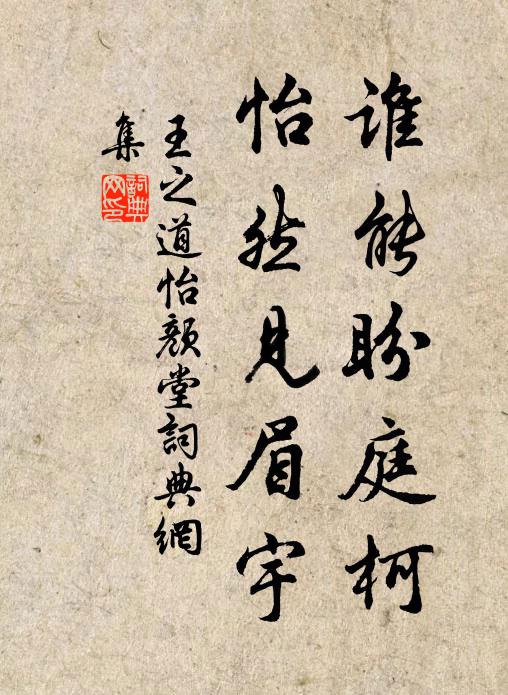 谁能盼庭柯
怡然见眉宇
王之道怡颜堂詞典網
集
詞典
网印